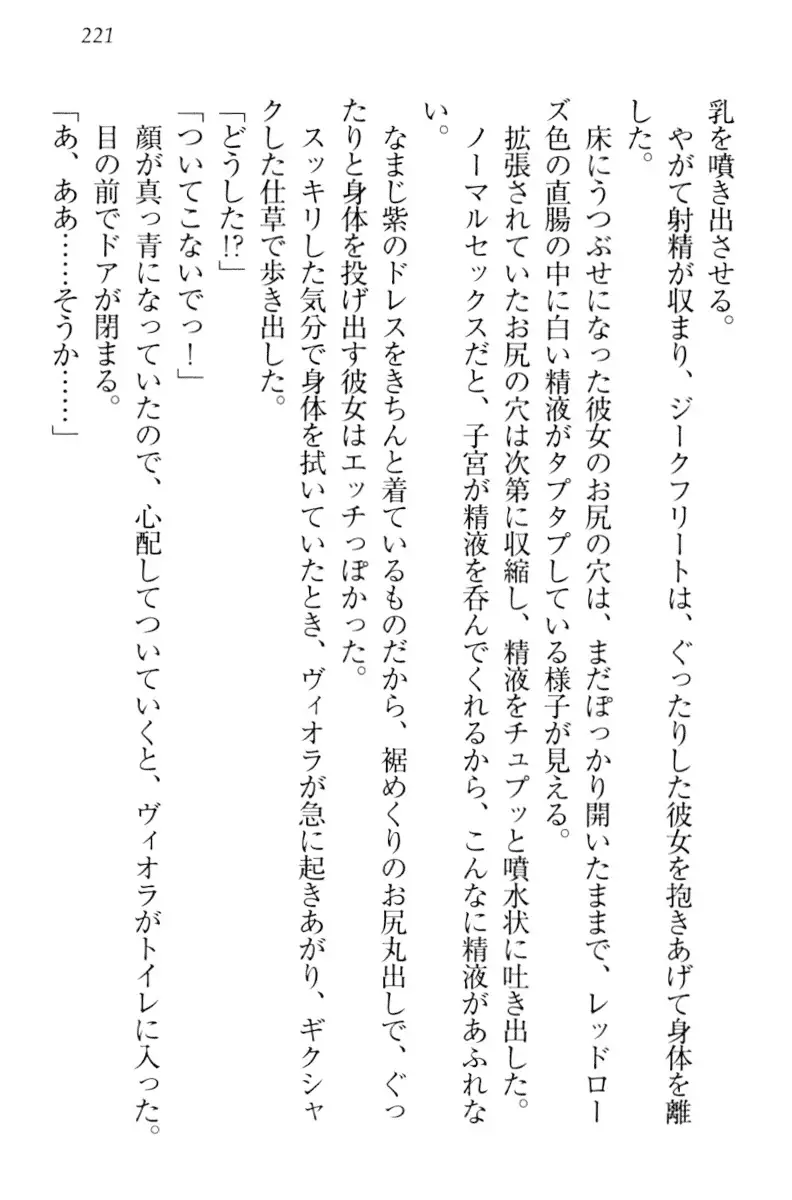 221
乳を噴き出させる。
やがて射精が収まり、ジークフリートは、ぐったりした彼女を抱きあげて身体を離
した。
床にうつぶせになった彼女のお尻の穴は、まだぽっかり開いたままで、レッドロー
ズ色の直腸の中に白い精液がタプタプしている様子が見える。
拡張されていたお尻の穴は次第に収縮し、精液をチュプッと噴水状に吐き出した。
ノーマルセックスだと、子宮が精液を呑んでくれるから、こんなに精液があふれな
い。
なまじ紫のドレスをきちんと着ているものだから、裾めくりのお尻丸出しで、ぐっ
たりと身体を投げ出す彼女はエッチっぽかった。
スッキリした気分で身体を拭いていたとき、ヴィオラが急に起きあがり、ギクシャ
クした仕草で歩き出した。
「どうした!?」
「ついてこないでっ！」
顔が真っ青になっていたので、心配してついていくと、ヴィオラがトイレに入った。
目の前でドアが閉まる。
「あ、ああ……そうか……」